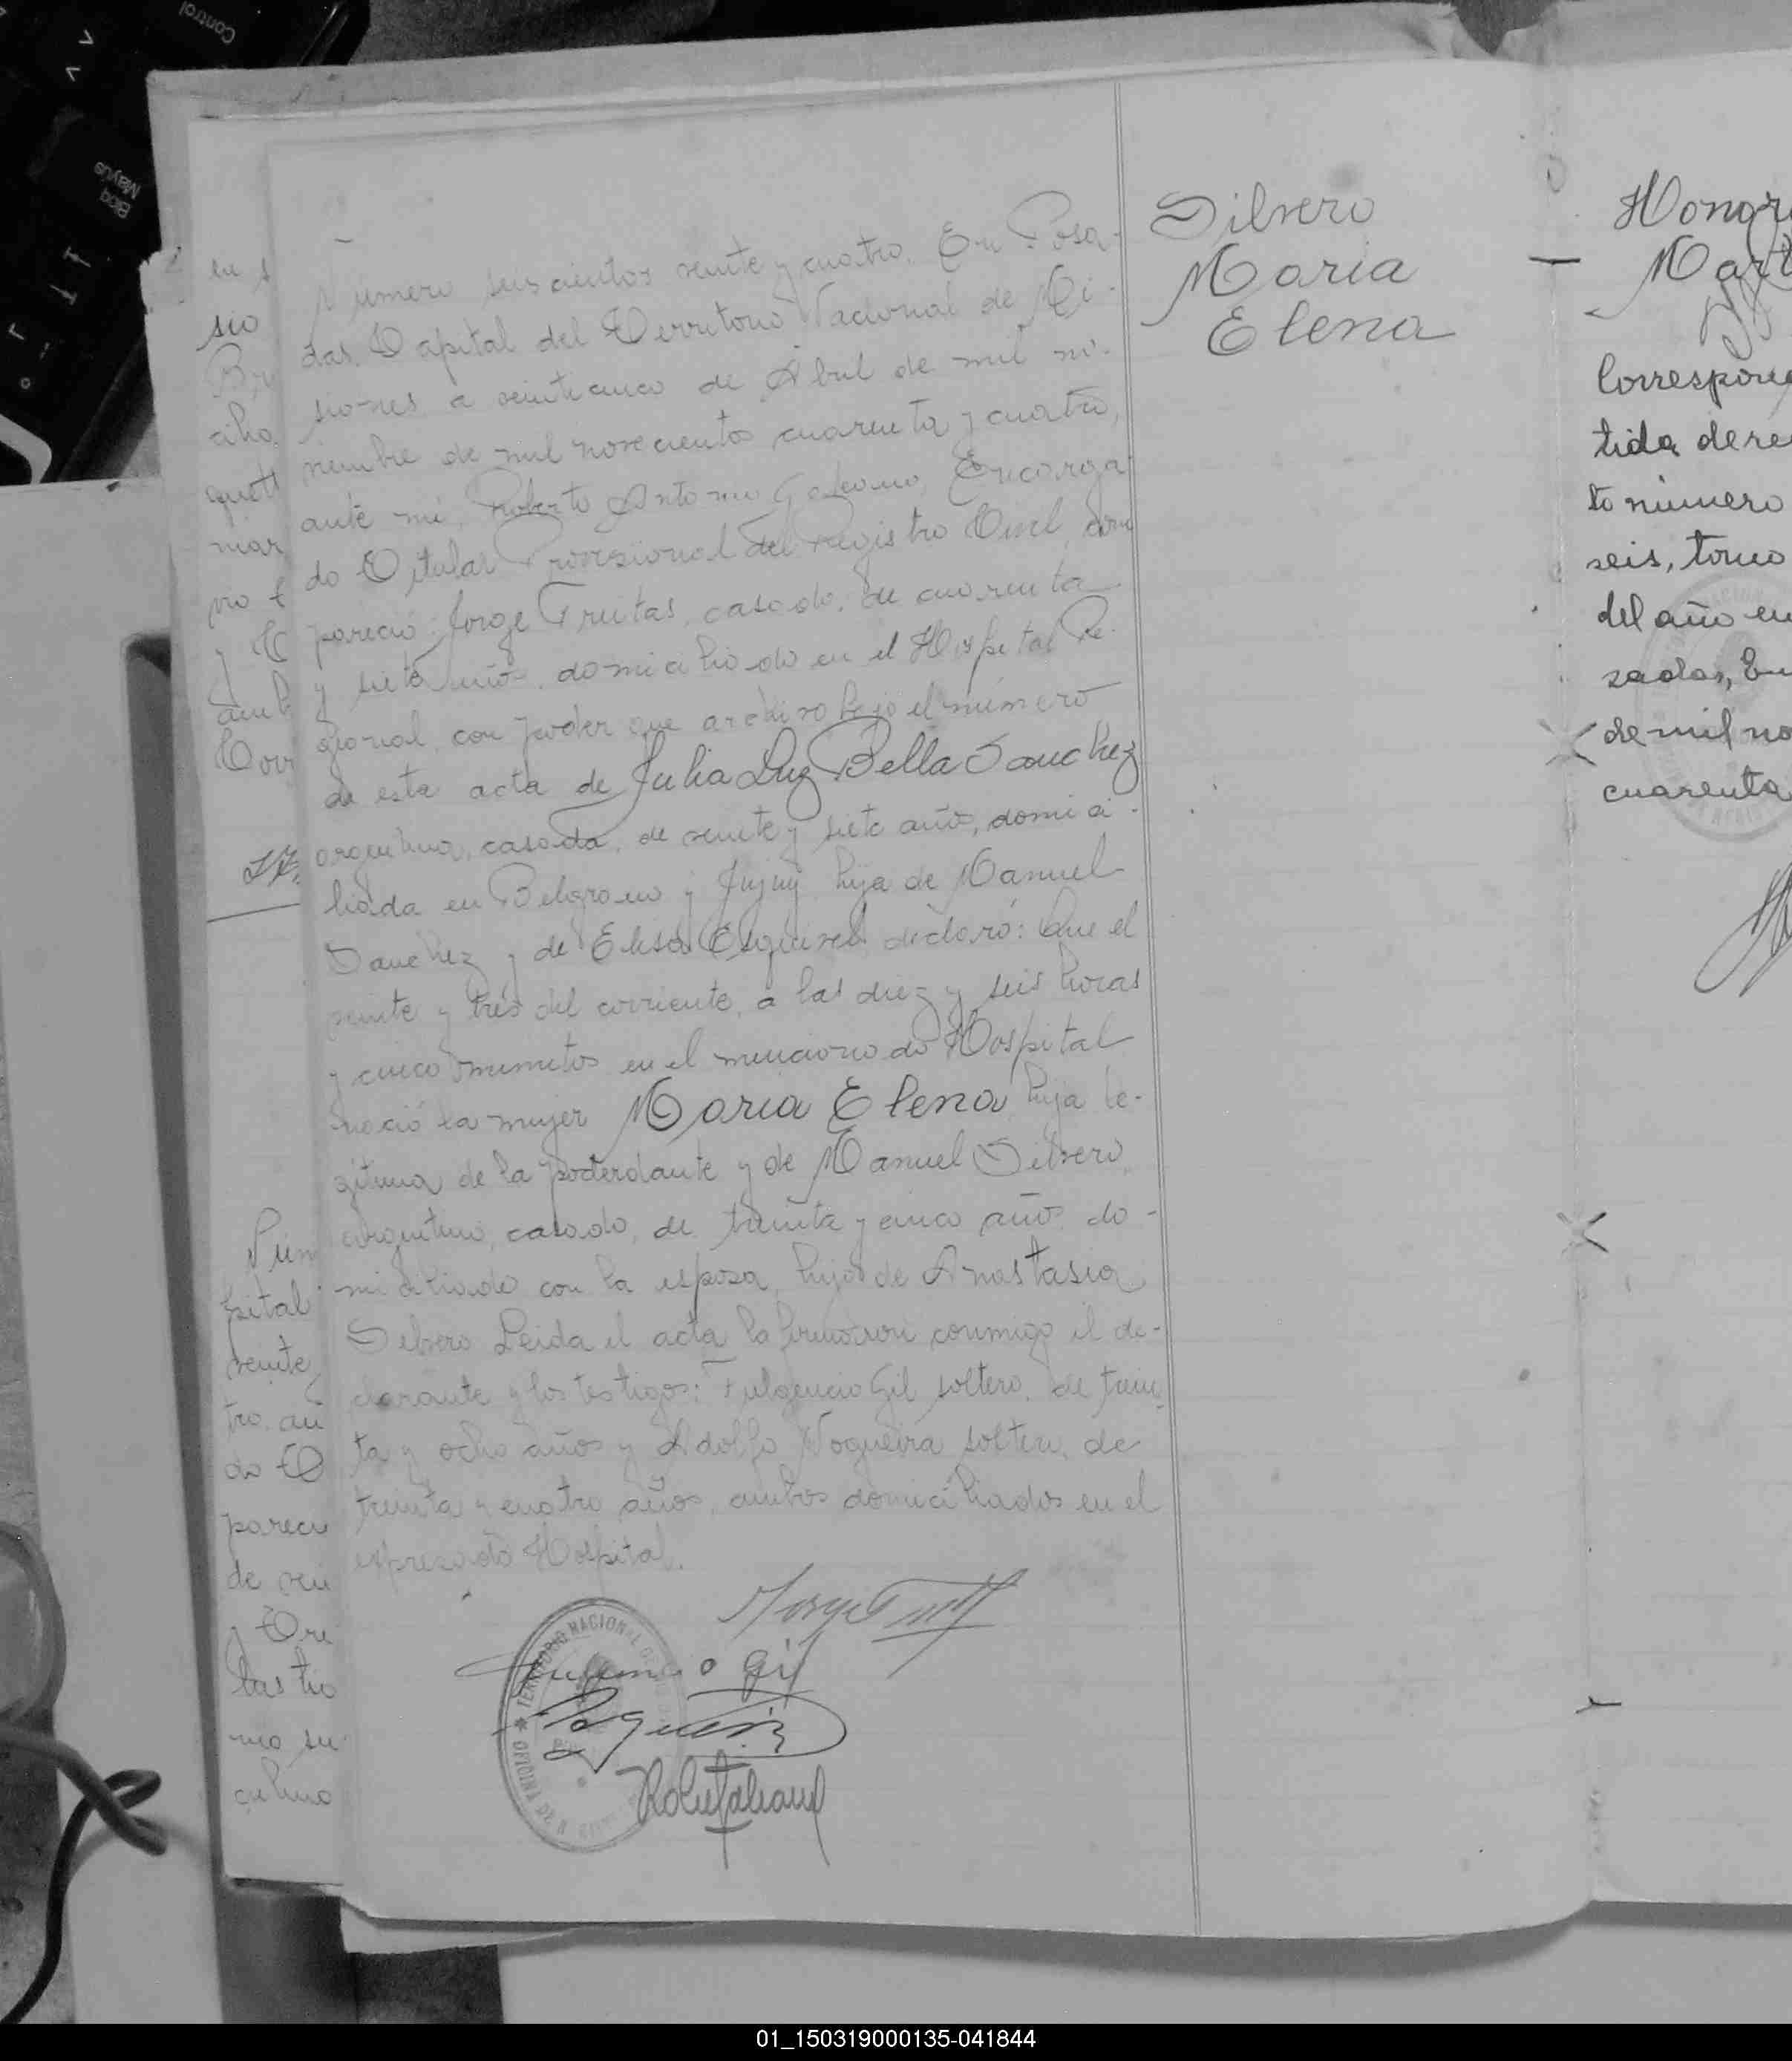 Numero seiscientos veinte y cuatro. En Posa-
das, Capital del Territorio Nacional de Mi-
siones a veinticinco de Abril de mil no-
viembre de mil novecientos cuarenta y cuatro,
ante mi, Roberto Antonio Galeano, Encarga-
do Titular Provisional del Registro Civil, com
pareció: Jorge Freitas, casado, de cuarenta
y siete años, domiciliado en el Hospital Re-
gional, con poder que archivo bajo el número
de esta acta de Julia Luz Bella Sanchez
argentina, casada, de veinte y siete años, domici-
liada en Belgrano y Jujuy hija de Manuel
Sanchez y de Elisa Esquivel declaró: Que el
veinte y tres del corriente, a las diez y seis horas
y cinco minutos en el mencionado Hospital
nació la mujer Maria Elena hija le-
gitima de la poderdante y de Manuel Silvero,
argentino, casado, de treinta y cinco años, do-
miciliado con la esposa, hijo de Anastasia
Silvero Leida el acta la firmaron conmigo el de-
clarante y los testigos: Fulgencio Gil soltero, de trein
ta y ocho años y Adolfo Nogueira soltero, de
treinta y cuatro años, ambos domiciliados en el
expresado Hospital.
Silvero
Maria
Elena
TERRITORIO NACIONAL
OFICINA
Correspon
tida de
to número
seis, tomo
del año en
de mil no
cuarenta
Control
Bloq
Mayús
01_150319000135-041844